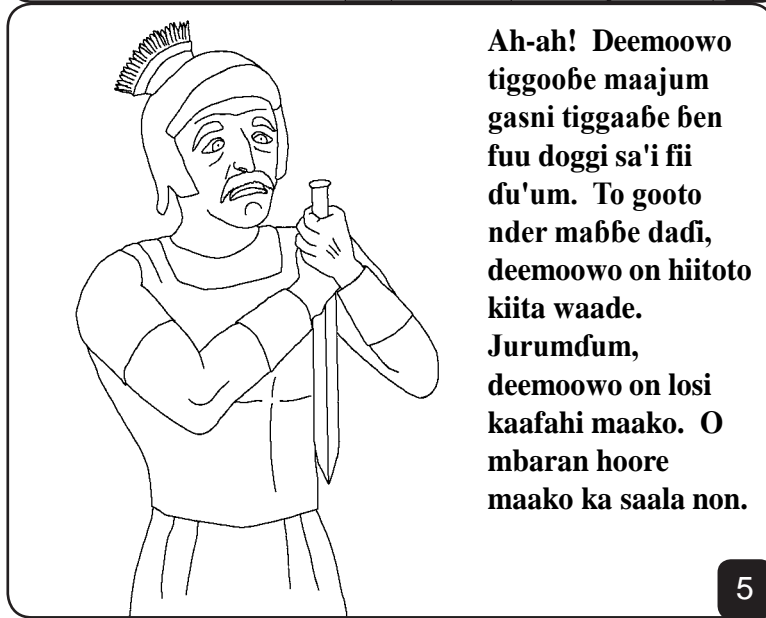 Ah-ah!  Deemoowo
tiggooɓe maajum
gasni tiggaaɓe ɓen
fuu doggi sa'i fii
ɗu'um.  To gooto
nder maɓɓe daɗi,
deemoowo on hiitoto
kiita waade.
Jurumɗum,
deemoowo on losi
kaafahi maako.  O
mbaran hoore
maako ka saala non.
5